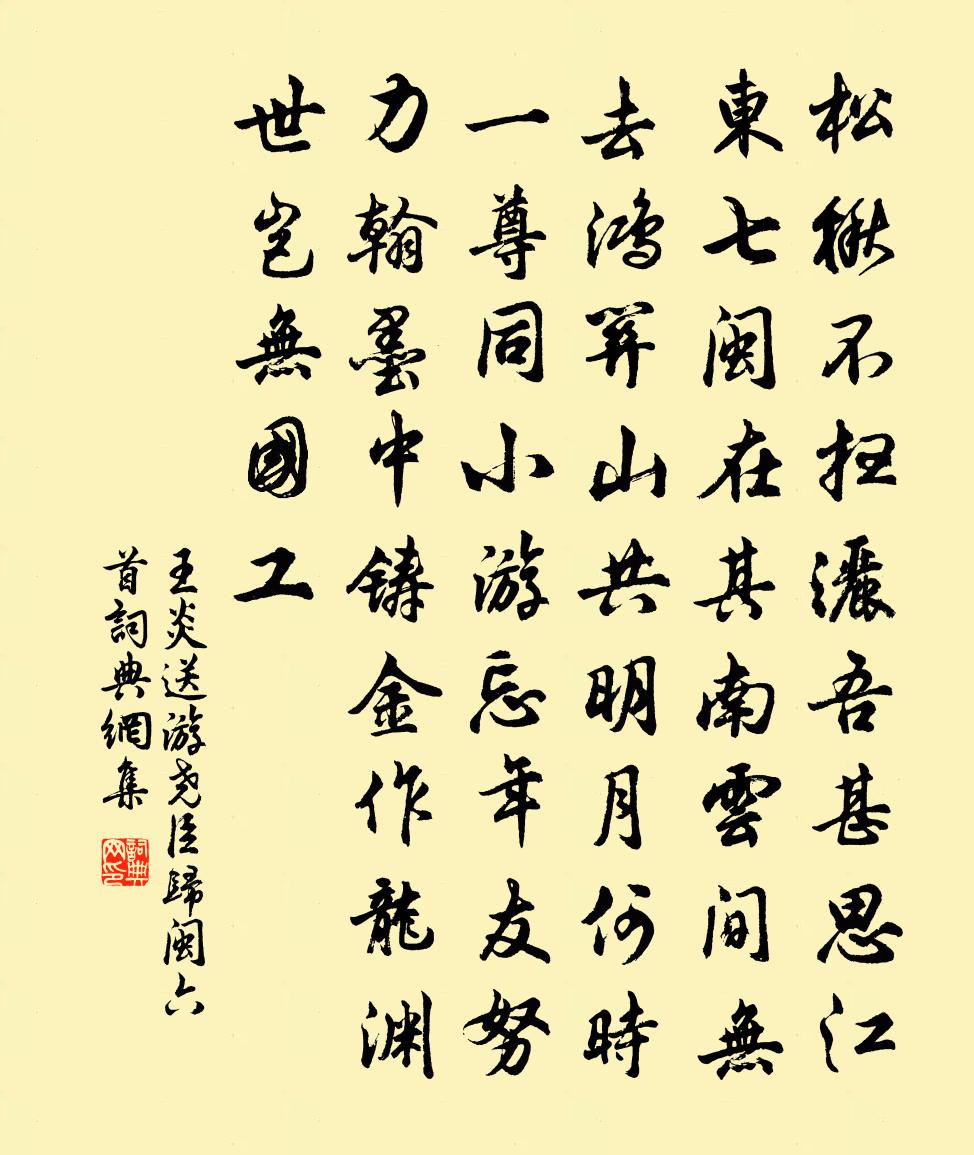 松楸不扫灑吾甚思江
東七閩在其南雲間無
去鴻關山共明月何時
一尊同小游忘年友努
力翰墨中鑄金作龍淵
世豈無國工
王炎送游尧臣歸閩六
首詞典網集
詞典网印